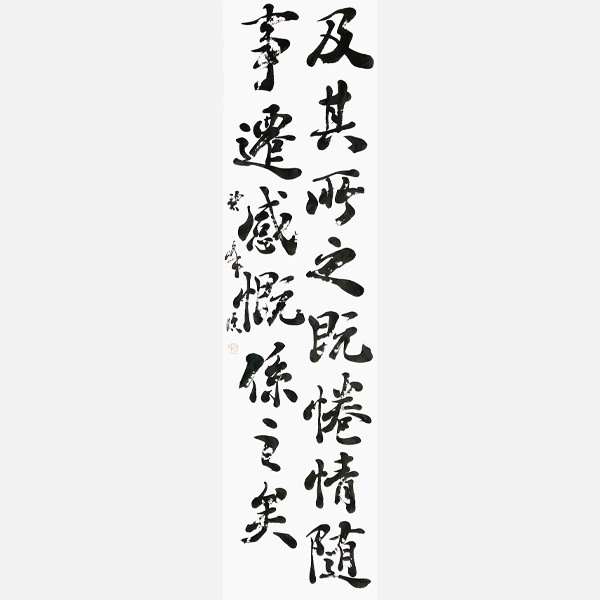 及其所之既惓情随
事遷感慨係之矣